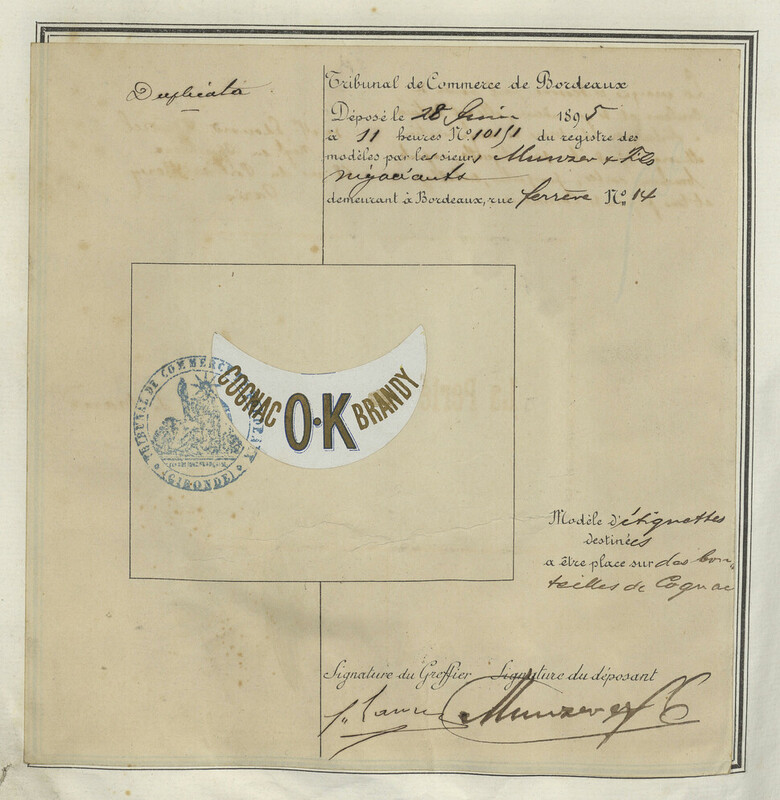 Duplicata
Tribunal de Commerce de Bordeaux
Déposé le 28 Juin 1895
à 11 heures No. 10151 du registre des
modèles par les sieurs Munzer & Fils
négociants
demeurant à Bordeaux, rue ferrère No. 14
COGNAC O·K BRANDY
TRIBUNAL DE COMMERCE
(GIRONDE)
Modèle d'étiquettes
destinées
a être place sur des bou-
teilles de Cognac
Signature du Greffier Signature du déposant
Munzer & f